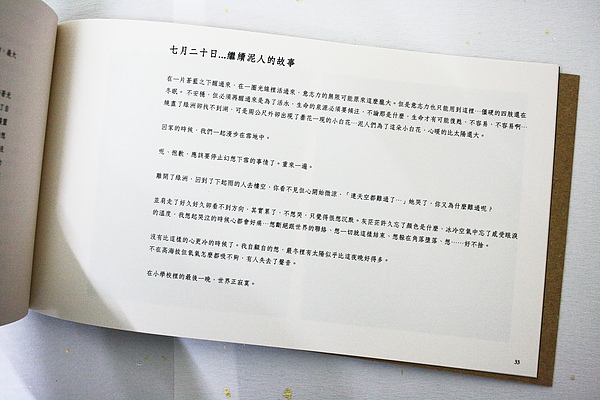 最大
七月二十日...繼續泥人的故事
在一片蒼藍之下醒過來，在一圈光線裡活過來，意志力的無限可能原來這麼龐大。但是意志力也只能用到這裡…僵硬的四肢還在
冬眠。不安穩，但必須再醒過來是為了活水，生命的泉源必須要傾注，不論那是什麼，生命才有可能復甦，不容易，不容易啊…
綠洲卻找不到湖，可是兩公尺外卻出現了曇花一現的小白花…泥人們為了這朵小白花，心暖的比太陽還大。
回家的時候，我們一起漫步在雲地中。
呃，抱歉，應該要停止幻想下雪的事情了。重來一遍。
離開了綠洲，回到了下起雨的人去樓空、你看不見但心開始微涼，「連天空都難過了…」她哭了，你又為什麼難過呢？
並肩走了好久好久卻看不到方向，其實累了，不想哭，只覺得很想沉默。灰茫茫許久忘了顏色是什麼，冰冷空氣中忘了感受眼淚
的溫度，我想起哭泣的時候心都會好痛…想斷絕跟世界的聯絡、想一切就這樣結束、想躲在角落墮落、想……好不捨。
沒有比這樣的心更冷的時候了。我自顧自的想，嚴冬裡有太陽似乎比這夜晚好得多。
不在高海拔但氧氣怎麼都吸不夠，有人失去了聲音。
在小學校裡的最後一晚，世界正寂寞。
33